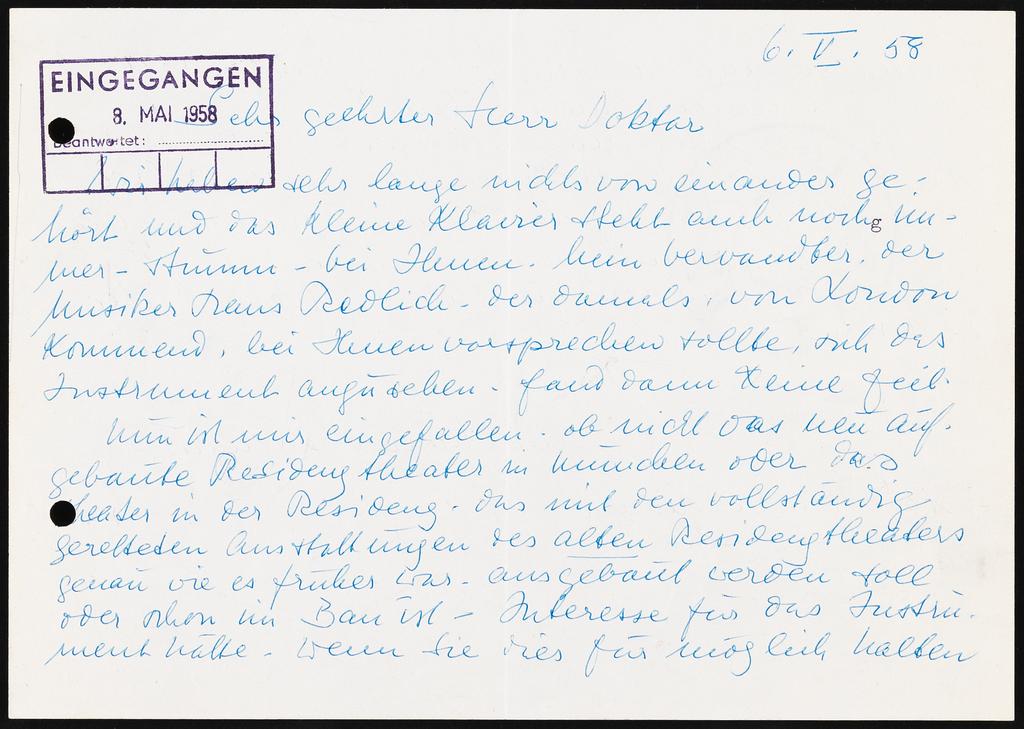 6. V. 58
EINGEGANGEN
8. MAI 1958
Beantwortet:
Sehr geehrter Herr Doktor
Wir haben sehr lange nichts von einander ge-
hört und das kleine Klavier steht auch noch im-
mer - stumm - bei Ihnen. Mein Verwandter, der
Musiker Hans Redlich - der damals, von London
kommend, bei Ihnen vorsprechen sollte, sich das
Instrument anzusehen - fand dann keine Zeit.
Nun ist mir eingefallen - ob nicht das neu auf-
gebaute Residenztheater in München oder das
Theater in der Residenz - das mit den vollständig
geretteten Ausstattungen des alten Residenztheaters
genau wie es früher war - ausgebaut werden soll
oder schon im Bau ist - Interesse für das Instru-
ment hätte - Wenn Sie dies für möglich halten